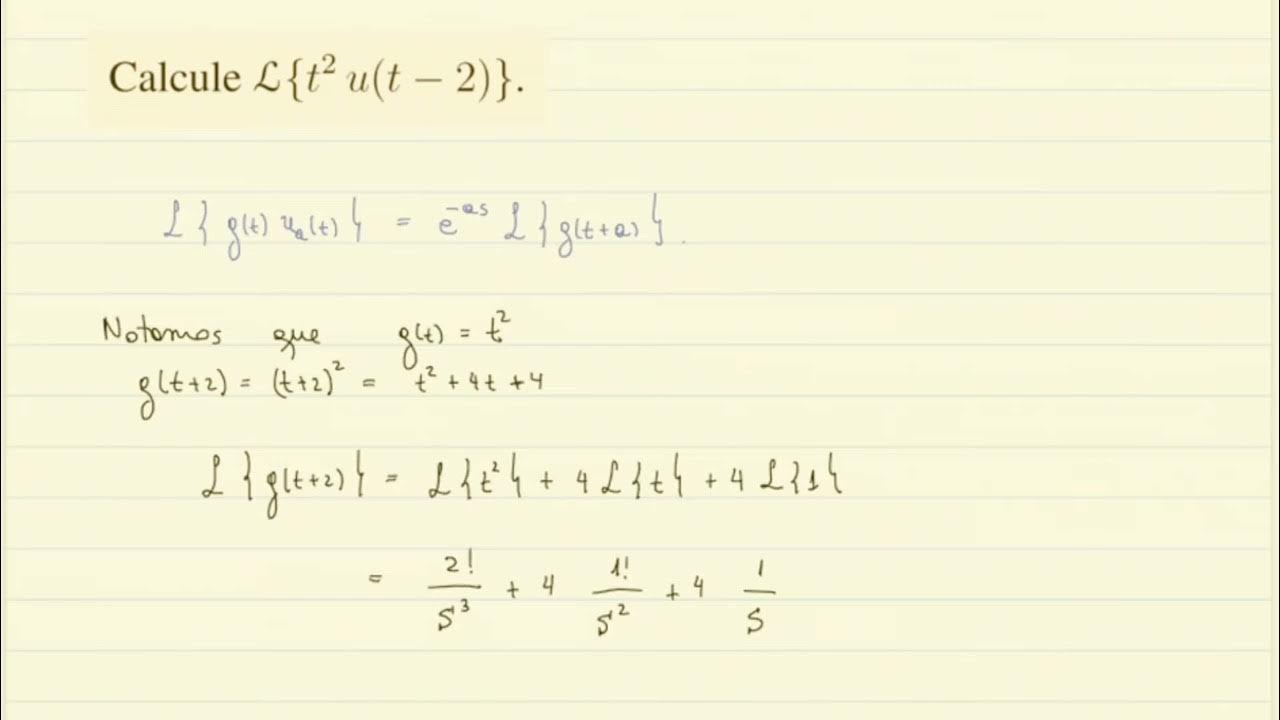 Calcule ℒ{t² u(t − 2)}.
ℒ{g(t) uₐ(t)} = e^{-as} ℒ{g(t+a)}.
Notamos que g(t) = t²
g(t+2) = (t+2)² = t² + 4t + 4
ℒ{g(t+2)} = ℒ{t²} + 4ℒ{t} + 4ℒ{1}
= 2!/s³ + 4 1!/s² + 4 1/s